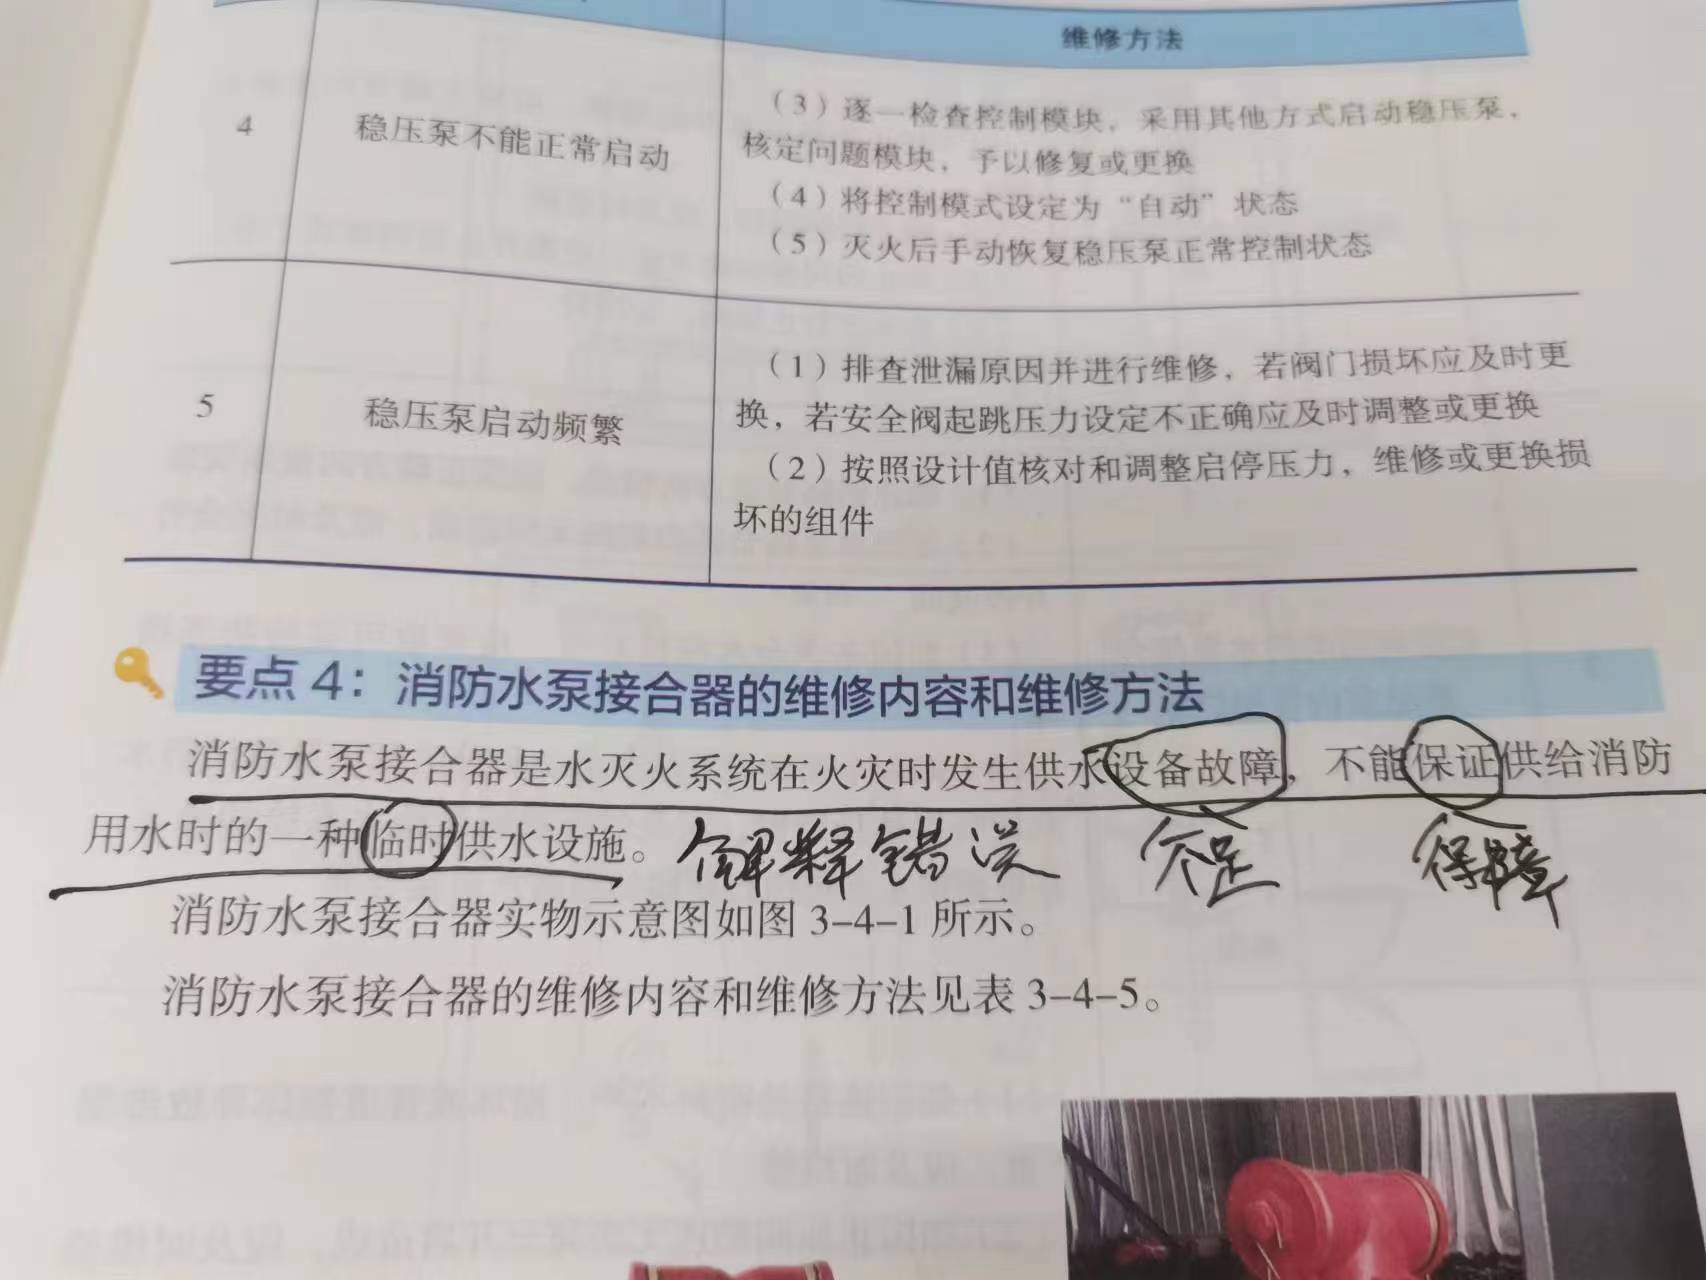 维修方法
4
稳压泵不能正常启动
（3）逐一检查控制模块，采用其他方式启动稳压泵，
核定问题模块，予以修复或更换
（4）将控制模式设定为“自动”状态
（5）灭火后手动恢复稳压泵正常控制状态
5
稳压泵启动频繁
（1）排查泄漏原因并进行维修，若阀门损坏应及时更
换，若安全阀起跳压力设定不正确应及时调整或更换
（2）按照设计值核对和调整启停压力，维修或更换损
坏的组件
要点 4：消防水泵接合器的维修内容和维修方法
消防水泵接合器是水灭火系统在火灾时发生供水设备故障，不能保证供给消防
用水时的一种临时供水设施。
解释错误 不足 得障
消防水泵接合器实物示意图如图 3-4-1 所示。
消防水泵接合器的维修内容和维修方法见表 3-4-5。